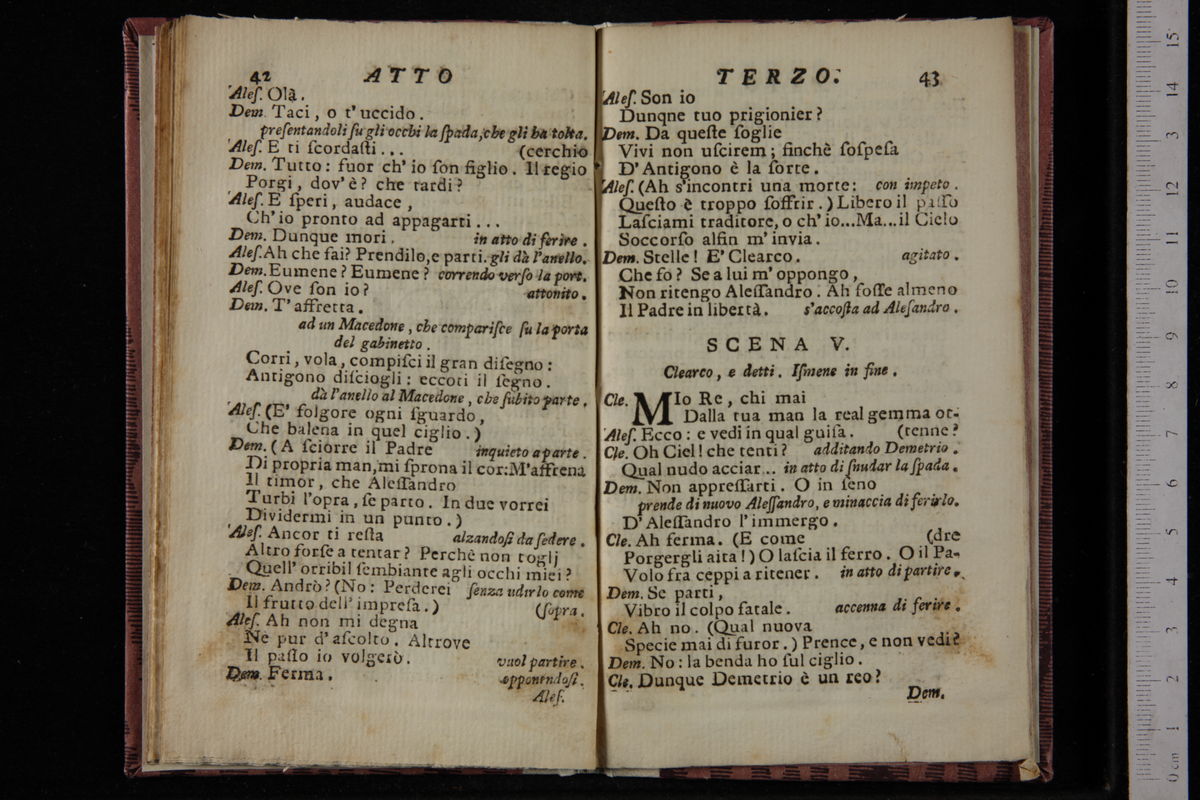 42 ATTO
Aleſ. Olà.
Dem. Taci, o t'uccido.
preſentandoli ſu gli occhi la ſpada, che gli ha tolta.
Aleſ. E ti ſcordaſti... (cerchio
Dem. Tutto: fuor ch' io ſon figlio. Il regio
Porgi, dov'è? che tardi?
Aleſ. E ſperi, audace,
Ch'io pronto ad appagarti...
Dem. Dunque mori. in atto di ferire.
Aleſ. Ah che fai? Prendilo, e parti. gli dà l'anello.
Dem. Eumene? Eumene? correndo verſo la port.
Aleſ. Ove ſon io? attonito.
Dem. T' affretta.
ad un Macedone, che compariſce ſu la porta
del gabinetto.
Corri, vola, compiſci il gran diſegno:
Antigono diſciogli: eccoti il ſegno.
dà l'anello al Macedone, che ſubito parte.
Aleſ. (E' folgore ogni ſguardo,
Che balena in quel ciglio.)
Dem. (A ſciorre il Padre inquieto a parte.
Di propria man, mi ſprona il cor: M'affrena
Il timor, che Aleſſandro
Turbi l'opra, ſe parto. In due vorrei
Dividermi in un punto.)
Aleſ. Ancor ti reſta alzandoſi da ſedere.
Altro forſe a tentar? Perchè non toglj
Quell' orribil ſembiante agli occhi miei?
Dem. Andrò? (No: Perderei ſenza udirlo come
Il frutto dell' impreſa.) (ſopra.
Aleſ. Ah non mi degna
Ne pur d' aſcolto. Altrove
Il paſſo io volgerò. vuol partire.
Dem. Ferma. opponendoſi.
Aleſ.
TERZO. 43
Aleſ. Son io
Dunqne tuo prigionier?
Dem. Da queſte ſoglie
Vivi non uſcirem; finchè ſoſpeſa
D' Antigono è la ſorte.
Aleſ. (Ah s'incontri una morte: con impeto.
Queſto è troppo ſoffrir.) Libero il paſſo
Laſciami traditore, o ch' io...Ma...il Cielo
Soccorſo alfin m' invia.
Dem. Stelle! E' Clearco. agitato.
Che fo? Se a lui m' oppongo,
Non ritengo Aleſſandro. Ah foſſe almeno
Il Padre in libertà. s'accoſta ad Aleſandro.
SCENA V.
Clearco, e detti. Iſmene in fine.
Cle. MIo Re, chi mai
Dalla tua man la real gemma ot-
Aleſ. Ecco: e vedi in qual guiſa. (tenne?
Cle. Oh Ciel! che tenti? additando Demetrio.
Qual nudo acciar... in atto di ſnudar la ſpada.
Dem. Non appreſſarti. O in ſeno
prende di nuovo Aleſſandro, e minaccia di ferirlo.
D' Aleſſandro l' immergo.
Cle. Ah ferma. (E come (dre
Porgergli aita!) O laſcia il ferro. O il Pa-
Volo fra ceppi a ritener. in atto di partire.
Dem. Se parti,
Vibro il colpo fatale. accenna di ferire.
Cle. Ah no. (Qual nuova
Specie mai di furor.) Prence, e non vedi?
Dem. No: la benda ho ſul ciglio.
Cle. Dunque Demetrio è un reo?
Dem.
15
14
13
12
11
10
9
8
7
6
5
4
3
2
1
0 cm